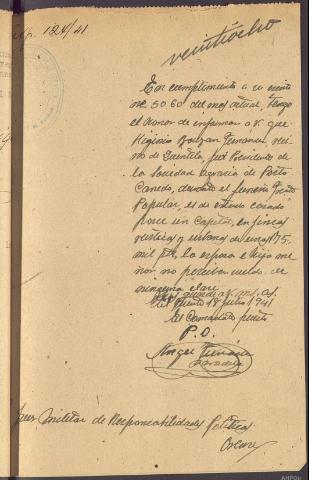 124/41
veintiocho
En cumplimiento a su escrito
nº 5060 del mes actual, tengo
el honor de informar a V. que
Higinio Bouzan Fernandez veci
no de Quintela, fué Presidente de
la Sociedad Agraria de Porto
Canedo, durante el funesto Frente
Popular, es de estado casado
posee un Capital, en fincas
rusticas y urbanas de unas 75
mil pts, la esposa e hijo me
nor no perciben sueldo de
ninguna clase.
Dios guarde a V. ms. as.
Puente 18 julio 1941
El Comandante puesto
P.O.
Angel
Juez Militar de Responsabilidades Politicas
Orense